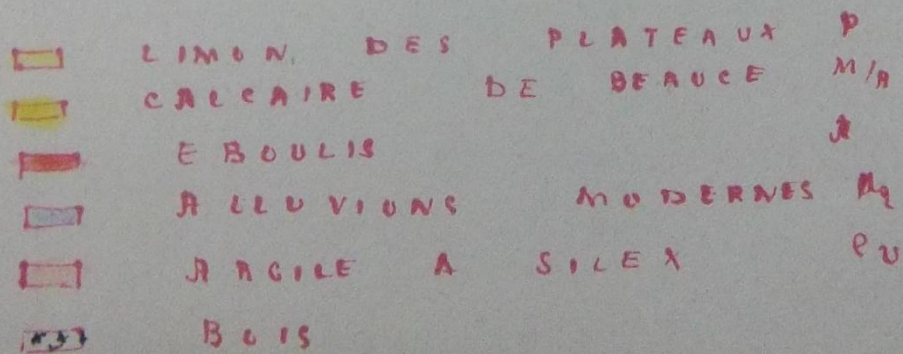 LIMON DES PLATEAUX P
CALCAIRE DE BEAUCE M/A
EBOULIS A
ALLUVIONS MODERNES A2
ARGILE A SILEX eV
BOIS